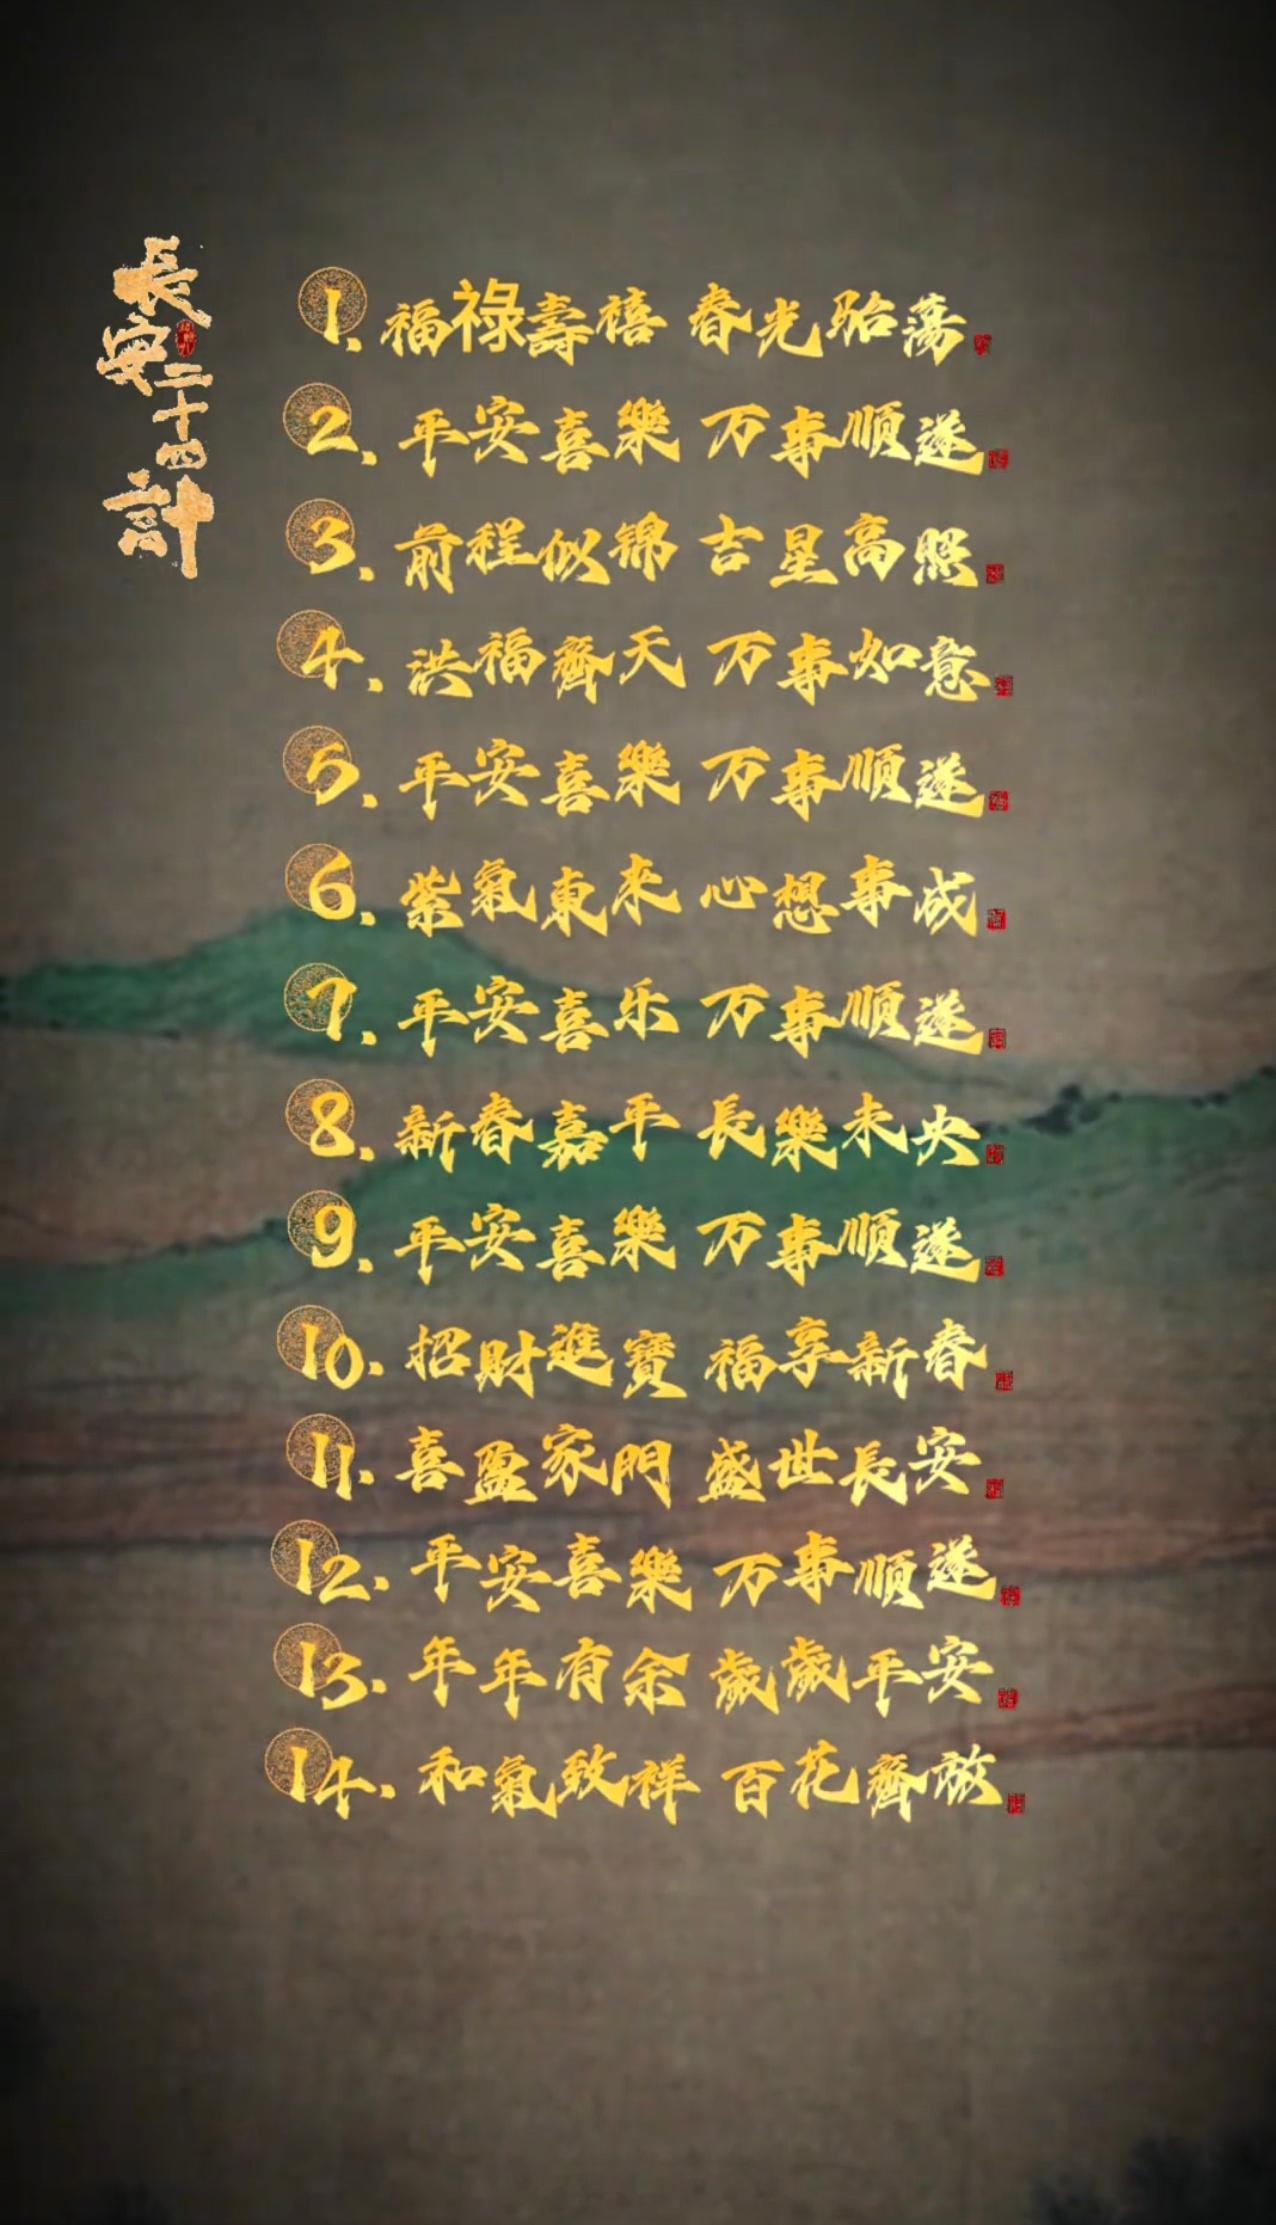 長安二十四計
1. 福祿壽禧 春光貽荡
2. 平安喜樂 万事順遂
3. 前程似锦 吉星高照
4. 洪福齊天 万事如意
5. 平安喜樂 万事順遂
6. 紫氣東来 心想事成
7. 平安喜乐 万事順遂
8. 新春嘉平 長樂未央
9. 平安喜樂 万事順遂
10. 招財進寶 福享新春
11. 喜盈家門 盛世長安
12. 平安喜樂 万事順遂
13. 年年有余 歲歲平安
14. 和氣致祥 百花齊放